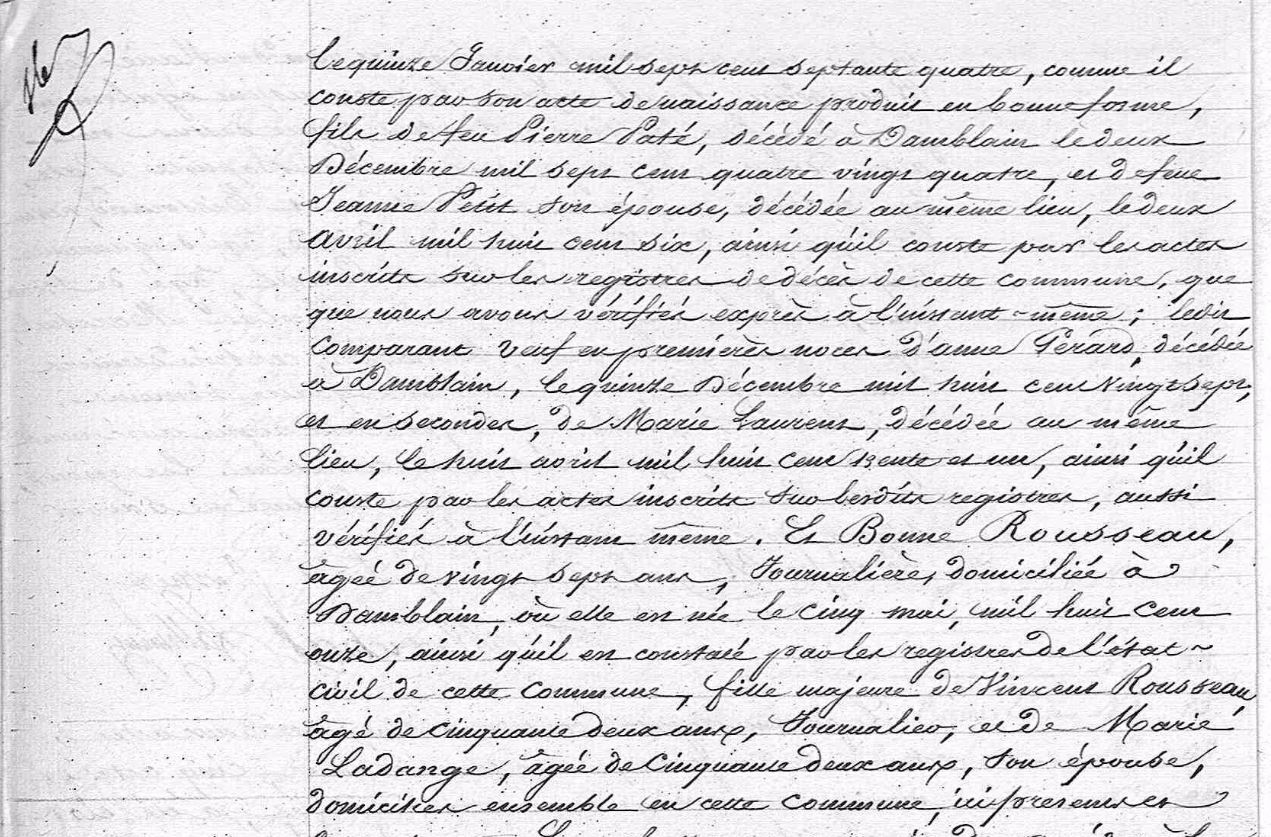 le quinze Janvier mil sept cent septante quatre, comme il
conste par son acte de naissance produit en bonne forme,
fils de feu Pierre Paté, décédé à Damblain le deux
Décembre mil sept cent quatre vingt quatre, et de feue
Jeanne Petit son épouse, décédée au même lieu, le deux
avril mil huit cent six, ainsi qu'il conste par les actes
inscrits sur les registres de décès de cette commune, que
que nous avons vérifiés exprès à l'instant-même; ledit
comparant veuf en premières noces d'anne Gérard, décédée
à Damblain, le quinze Décembre mil huit cent vingt sept,
et en secondes, de Marie Laurent, décédée au même
lieu, le huit avril mil huit cent trente et un, ainsi qu'il
conste par les actes inscrits sur lesdits registres, aussi
vérifiés à l'instant même. Et Bonne Rousseau,
âgée de vingt sept ans, Journalière, domiciliée à
Damblain, où elle est née le cinq mai, mil huit cent
onze, ainsi qu'il est constaté par les registres de l'état-
civil de cette commune, fille majeure de Vincent Rousseau,
âgé de cinquante deux ans, Journalier, et de Marie
Ladange, âgée de cinquante deux ans, son épouse,
domiciliés ensemble en cette commune, ici présents et